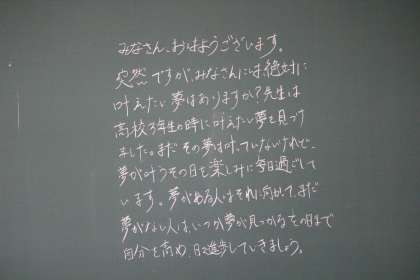 みなさん、おはようございます。
突然ですが、みなさんには絶対に
叶えたい夢はありますか？先生は
高校3年生の時に叶えたい夢を見つけ
ました。まだその夢は叶っていないけれど、
夢が叶うその日を楽しみに毎日過ごして
います。夢がある人はそれに向かって、まだ
夢がない人は、いつか夢が見つかるその日まで
自分を高め、日々進歩していきましょう。